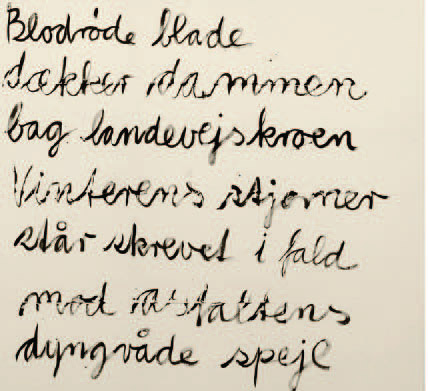 Blodrøde blade
dækker dammen
bag landevejskroen
Vinterens stjerner
står skrevet i fald
mod asfaltens
dyngvåde spejl